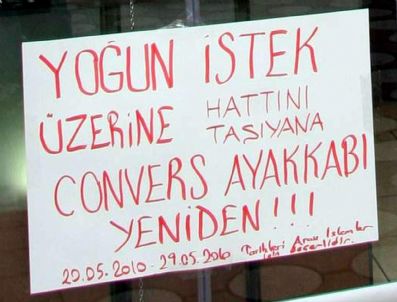 YOĞUN İSTEK
ÜZERİNE HATTINI TAŞIYANA
CONVERS AYAKKABI
YENİDEN!!!
20.05.2010 - 29.05.2010 Tarihleri Arası İşlemler için Geçerlidir.